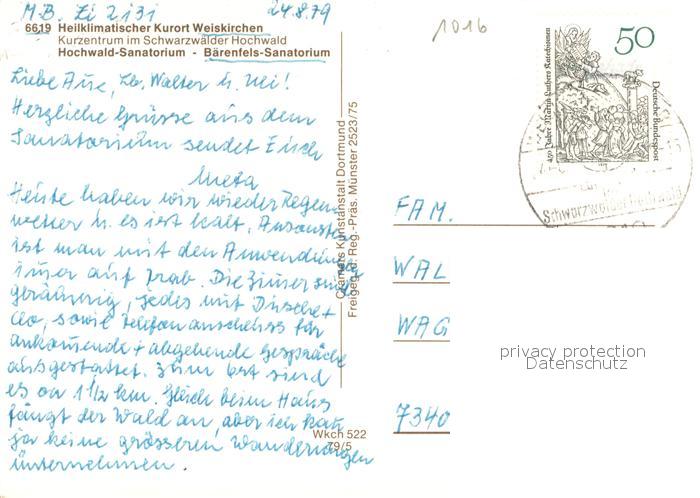 M.B. Zi 2131 24.8.79
6619 Heilklimatischer Kurort Weiskirchen
Kurzentrum im Schwarzwälder Hochwald
Hochwald-Sanatorium - Bärenfels-Sanatorium
Liebe Aue, Lb. Walter u.
Herzliche Grüsse aus dem
Sanatorium sendet Euch
Meta
Heute haben wir wieder Regen
wetter u. es ist kalt. Ansonsten
ist man mit den Anwendungen
imer auf Trab. Die Zimer sind
geräumig, jedes mit Dusche +
Clo, sowie Telefonanschluss für
ankomende + abgehende Gespräche
ausgestattet. Zum Ort sind
es ca 1 1/2 km. Gleich beim Haus
fängt der Wald an, aber ich kan
ja keine grösseren Wanderungen
unternehmen.
Cramers Kunstanstalt Dortmund
Freigeg. d. Reg.-Präs. Münster 2523/75
Wkch 522
79/5
1016
50
Deutsche Bundespost
450 Jahre Martin Luthers Katechismen
Schwarzwälder Hochwald
FAM.
WAL
WAG
7340
privacy protection
Datenschutz